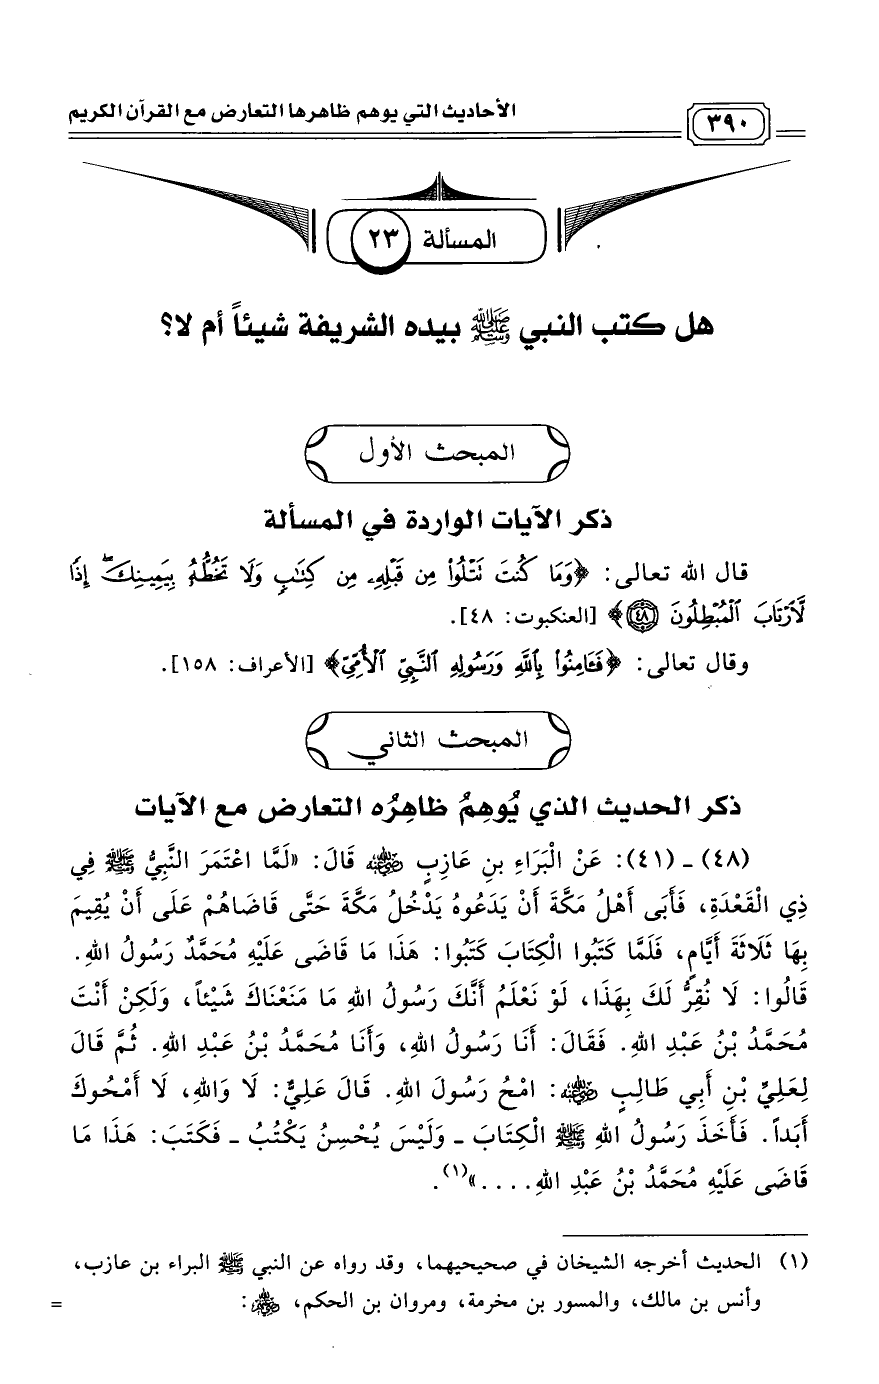 الأحاديث التي يوهم ظاهرها التعارض مع القرآن الكريم
٣٩٠
المسألة ٢٣
هل كتب النبي ﷺ بيده الشريفة شيئاً أم لا؟
المبحث الأول
ذكر الآيات الواردة في المسألة
قال الله تعالى: ﴿وَمَا كُنتَ نَتْلُواْ مِن قَبْلِهِۦ مِن كِتَٰبٍ وَلَا تَخُطُّهُۥ بِيَمِينِكَۖ إِذًا
لَّٱرْتَابَ ٱلْمُبْطِلُونَ ٤٨﴾ [العنكبوت: ٤٨].
وقال تعالى: ﴿فَـَٔامِنُواْ بِٱللَّهِ وَرَسُولِهِ ٱلنَّبِىِّ ٱلْأُمِّىِّ﴾ [الأعراف: ١٥٨].
المبحث الثاني
ذكر الحديث الذي يُوهِمُ ظاهِرُه التعارض مع الآيات
(٤٨) ـ (٤١): عَنْ الْبَرَاءِ بنِ عَازِبٍ رضي الله عنه قَالَ: «لَمَّا اعْتَمَرَ النَّبِيُّ ﷺ فِي
ذِي الْقَعْدَةِ، فَأَبَى أَهْلُ مَكَّةَ أَنْ يَدَعُوهُ يَدْخُلُ مَكَّةَ حَتَّى قَاضَاهُمْ عَلَى أَنْ يُقِيمَ
بِهَا ثَلَاثَةَ أَيَّامٍ، فَلَمَّا كَتَبُوا الْكِتَابَ كَتَبُوا: هَذَا مَا قَاضَى عَلَيْهِ مُحَمَّدٌ رَسُولُ اللهِ.
قَالُوا: لَا نُقِرُّ لَكَ بِهَذَا، لَوْ نَعْلَمُ أَنَّكَ رَسُولُ اللهِ مَا مَنَعْنَاكَ شَيْئاً، وَلَكِنْ أَنْتَ
مُحَمَّدُ بْنُ عَبْدِ اللهِ. فَقَالَ: أَنَا رَسُولُ اللهِ، وَأَنَا مُحَمَّدُ بْنُ عَبْدِ اللهِ. ثُمَّ قَالَ
لِعَلِيِّ بْنِ أَبِي طَالِبٍ رضي الله عنه: امْحُ رَسُولَ اللهِ. قَالَ عَلِيٌّ: لَا وَاللهِ، لَا أَمْحُوكَ
أَبَداً. فَأَخَذَ رَسُولُ اللهِ ﷺ الْكِتَابَ ـ وَلَيْسَ يُحْسِنُ يَكْتُبُ ـ فَكَتَبَ: هَذَا مَا
قَاضَى عَلَيْهِ مُحَمَّدُ بْنُ عَبْدِ اللهِ....»(١).
(١) الحديث أخرجه الشيخان في صحيحيهما، وقد رواه عن النبي ﷺ البراء بن عازب،
وأنس بن مالك، والمسور بن مخرمة، ومروان بن الحكم، رضي الله عنهم: =